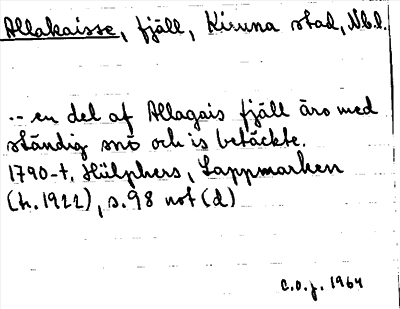 Allakaisse, fjäll, Kiruna stad, Nb.l.
-- en del af Allagais fjäll äro med
ständig snö och is betäckte.
1790-t. Hülphers, Lappmarken
(tr. 1922), s. 98 not (d)
C.O.J. 1964